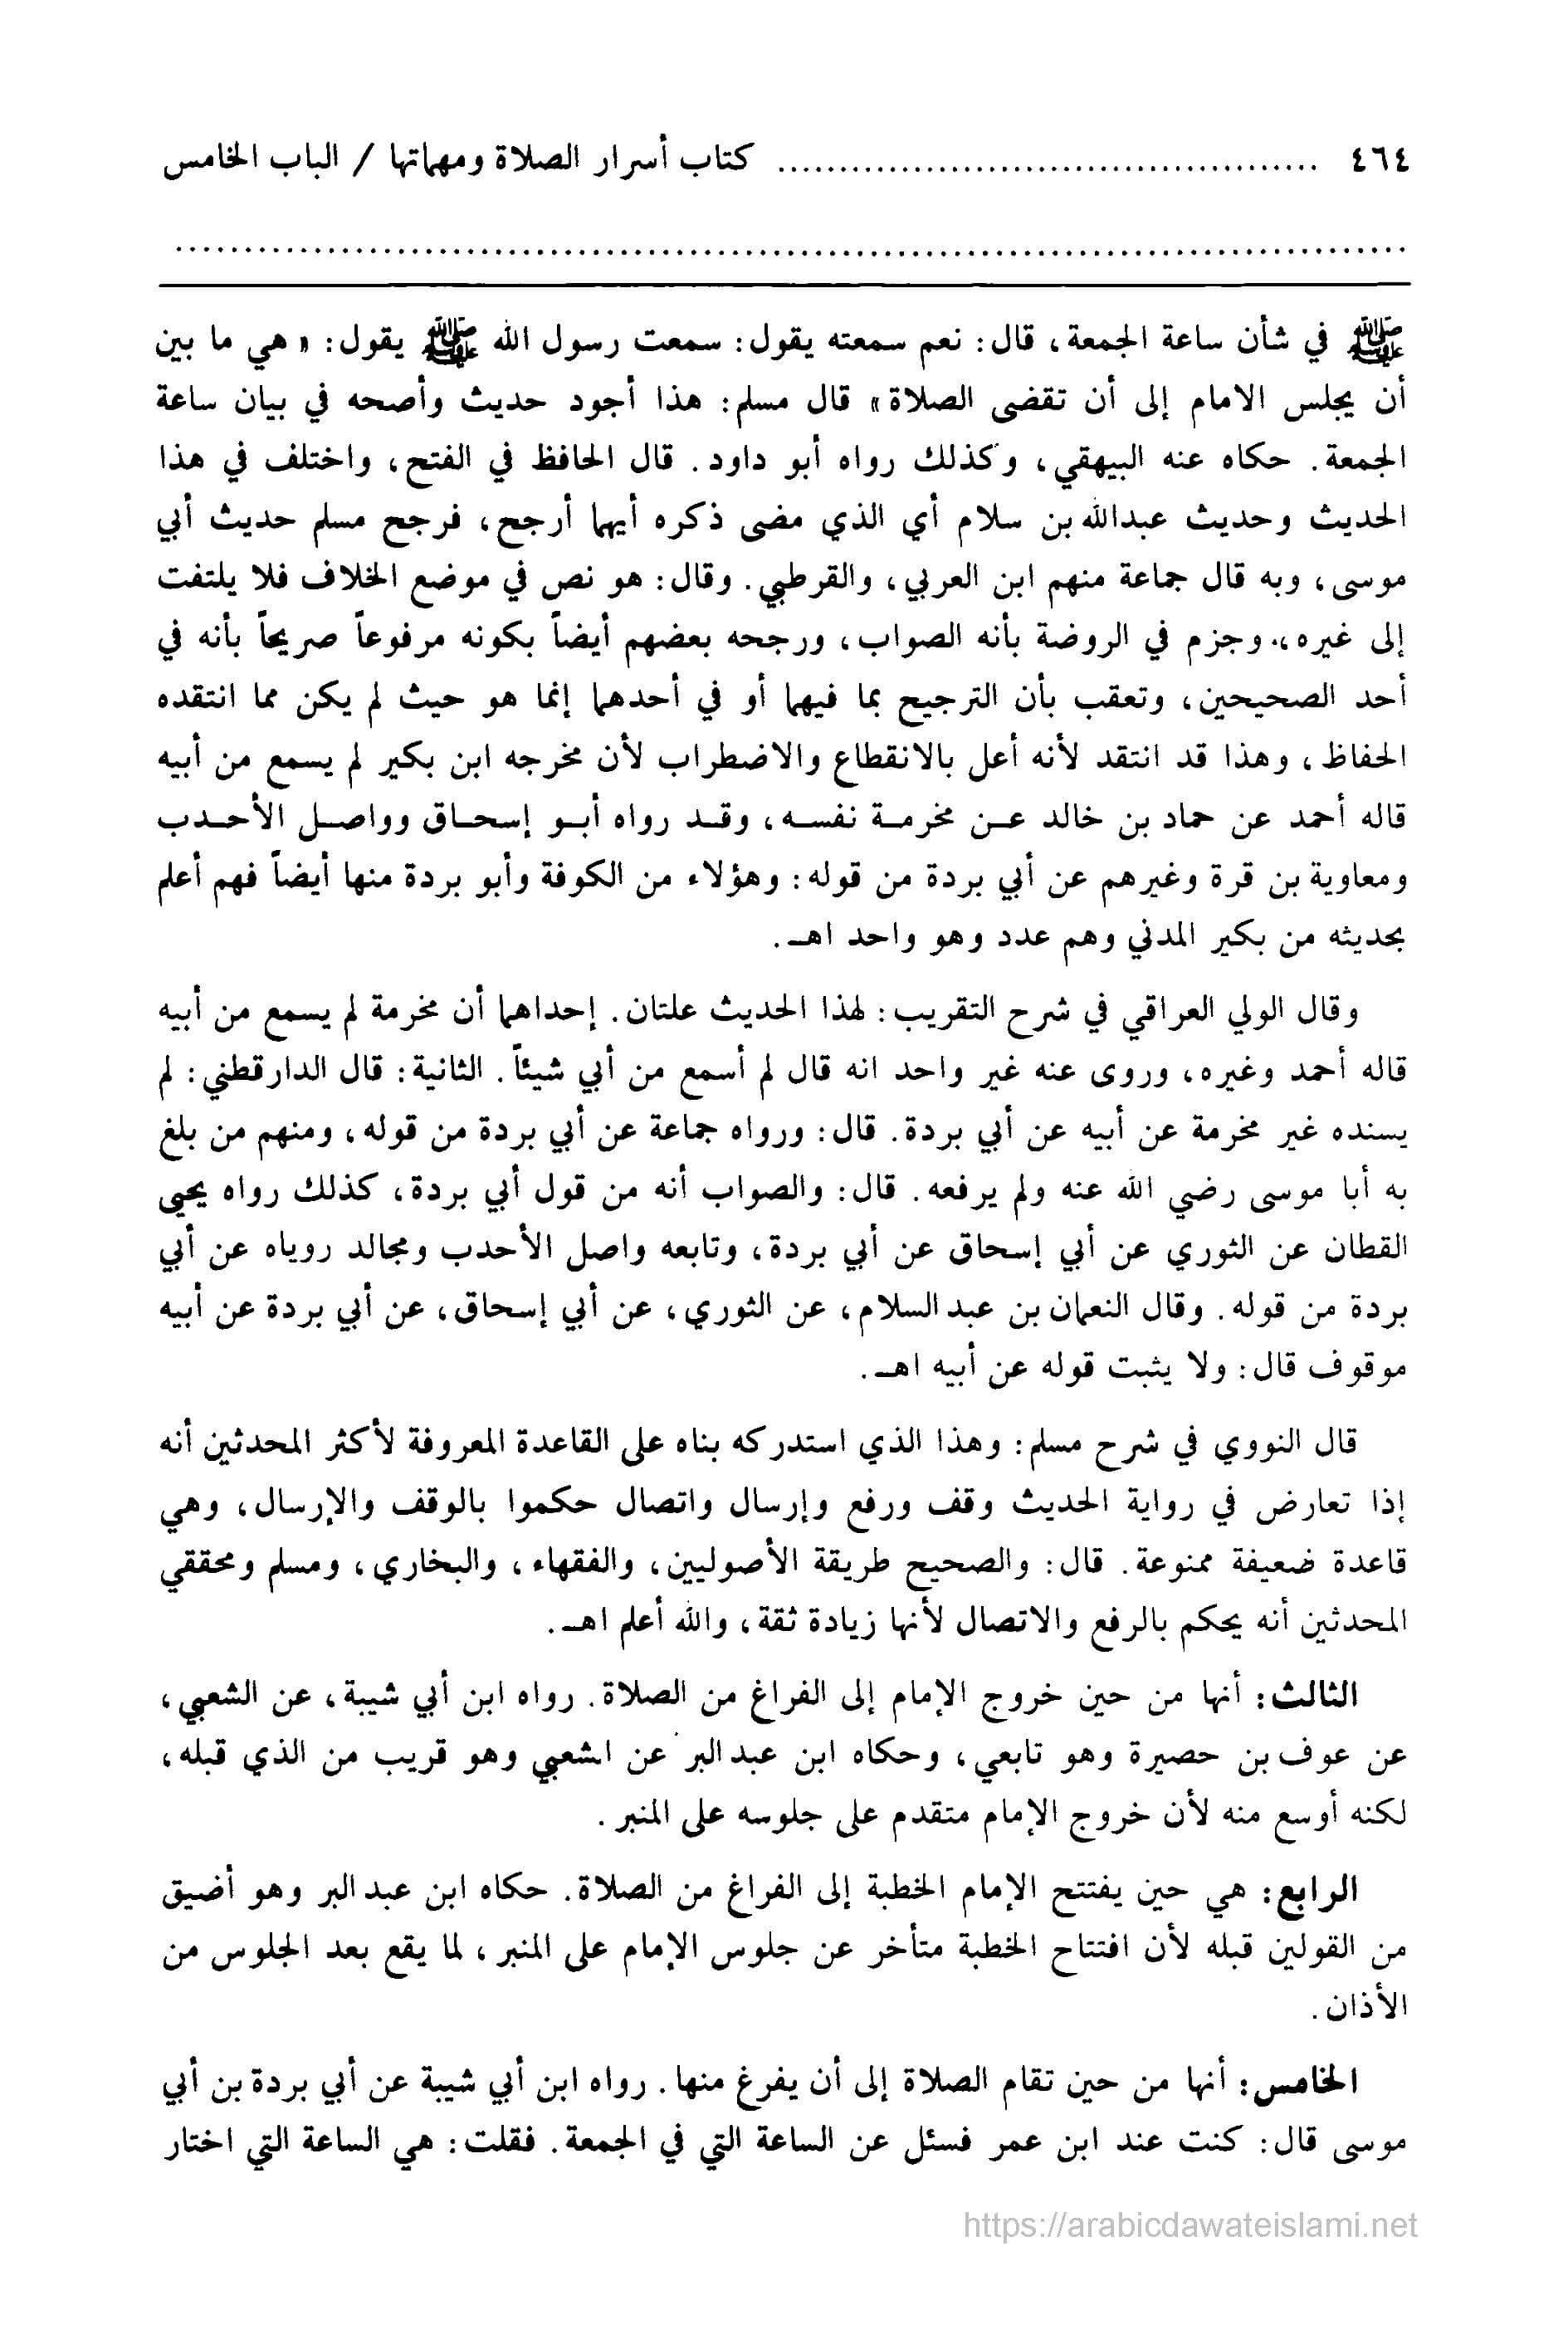 ٤٦٤ ........................................ كتاب أسرار الصلاة ومهماتها / الباب الخامس
..........................................................................................
ﷺ في شأن ساعة الجمعة، قال: نعم سمعته يقول: سمعت رسول الله ﷺ يقول: «هي ما بين
أن يجلس الامام إلى أن تقضى الصلاة» قال مسلم: هذا أجود حديث وأصحه في بيان ساعة
الجمعة. حكاه عنه البيهقي، وكذلك رواه أبو داود. قال الحافظ في الفتح، واختلف في هذا
الحديث وحديث عبدالله بن سلام أي الذي مضى ذكره أيهما أرجح، فرجح مسلم حديث أبي
موسى، وبه قال جماعة منهم ابن العربي، والقرطبي. وقال: هو نص في موضع الخلاف فلا يلتفت
إلى غيره،. وجزم في الروضة بأنه الصواب، ورجحه بعضهم أيضاً بكونه مرفوعاً صريحاً بأنه في
أحد الصحيحين، وتعقب بأن الترجيح بما فيهما أو في أحدهما إنما هو حيث لم يكن مما انتقده
الحفاظ، وهذا قد انتقد لأنه أعل بالانقطاع والاضطراب لأن مخرجه ابن بكير لم يسمع من أبيه
قاله أحمد عن حماد بن خالد عن مخرمة نفسه، وقد رواه أبو إسحاق وواصل الأحدب
ومعاوية بن قرة وغيرهم عن أبي بردة من قوله: وهؤلاء من الكوفة وأبو بردة منها أيضاً فهم أعلم
بحديثه من بكير المدني وهم عدد وهو واحد اهـ.
وقال الولي العراقي في شرح التقريب: لهذا الحديث علتان. إحداهما أن مخرمة لم يسمع من أبيه
قاله أحمد وغيره، وروى عنه غير واحد انه قال لم أسمع من أبي شيئاً. الثانية: قال الدارقطني: لم
يسنده غير مخرمة عن أبيه عن أبي بردة. قال: ورواه جماعة عن أبي بردة من قوله، ومنهم من بلغ
به أبا موسى رضي الله عنه ولم يرفعه. قال: والصواب أنه من قول أبي بردة، كذلك رواه يحيى
القطان عن الثوري عن أبي إسحاق عن أبي بردة، وتابعه واصل الأحدب ومجالد روياه عن أبي
بردة من قوله. وقال النعمان بن عبد السلام، عن الثوري، عن أبي إسحاق، عن أبي بردة عن أبيه
موقوف قال: ولا يثبت قوله عن أبيه اهـ.
قال النووي في شرح مسلم: وهذا الذي استدركه بناه على القاعدة المعروفة لأكثر المحدثين أنه
إذا تعارض في رواية الحديث وقف ورفع وإرسال واتصال حكموا بالوقف والإرسال، وهي
قاعدة ضعيفة ممنوعة. قال: والصحيح طريقة الأصوليين، والفقهاء، والبخاري، ومسلم ومحققي
المحدثين أنه يحكم بالرفع والاتصال لأنها زيادة ثقة، والله أعلم اهـ.
الثالث: أنها من حين خروج الإمام إلى الفراغ من الصلاة. رواه ابن أبي شيبة، عن الشعبي،
عن عوف بن حصيرة وهو تابعي، وحكاه ابن عبد البر عن الشعبي وهو قريب من الذي قبله،
لكنه أوسع منه لأن خروج الإمام متقدم على جلوسه على المنبر.
الرابع: هي حين يفتتح الإمام الخطبة إلى الفراغ من الصلاة. حكاه ابن عبد البر وهو أضيق
من القولين قبله لأن افتتاح الخطبة متأخر عن جلوس الإمام على المنبر، لما يقع بعد الجلوس من
الأذان.
الخامس: أنها من حين تقام الصلاة إلى أن يفرغ منها. رواه ابن أبي شيبة عن أبي بردة بن أبي
موسى قال: كنت عند ابن عمر فسئل عن الساعة التي في الجمعة. فقلت: هي الساعة التي اختار
https://arabicdawateislami.net